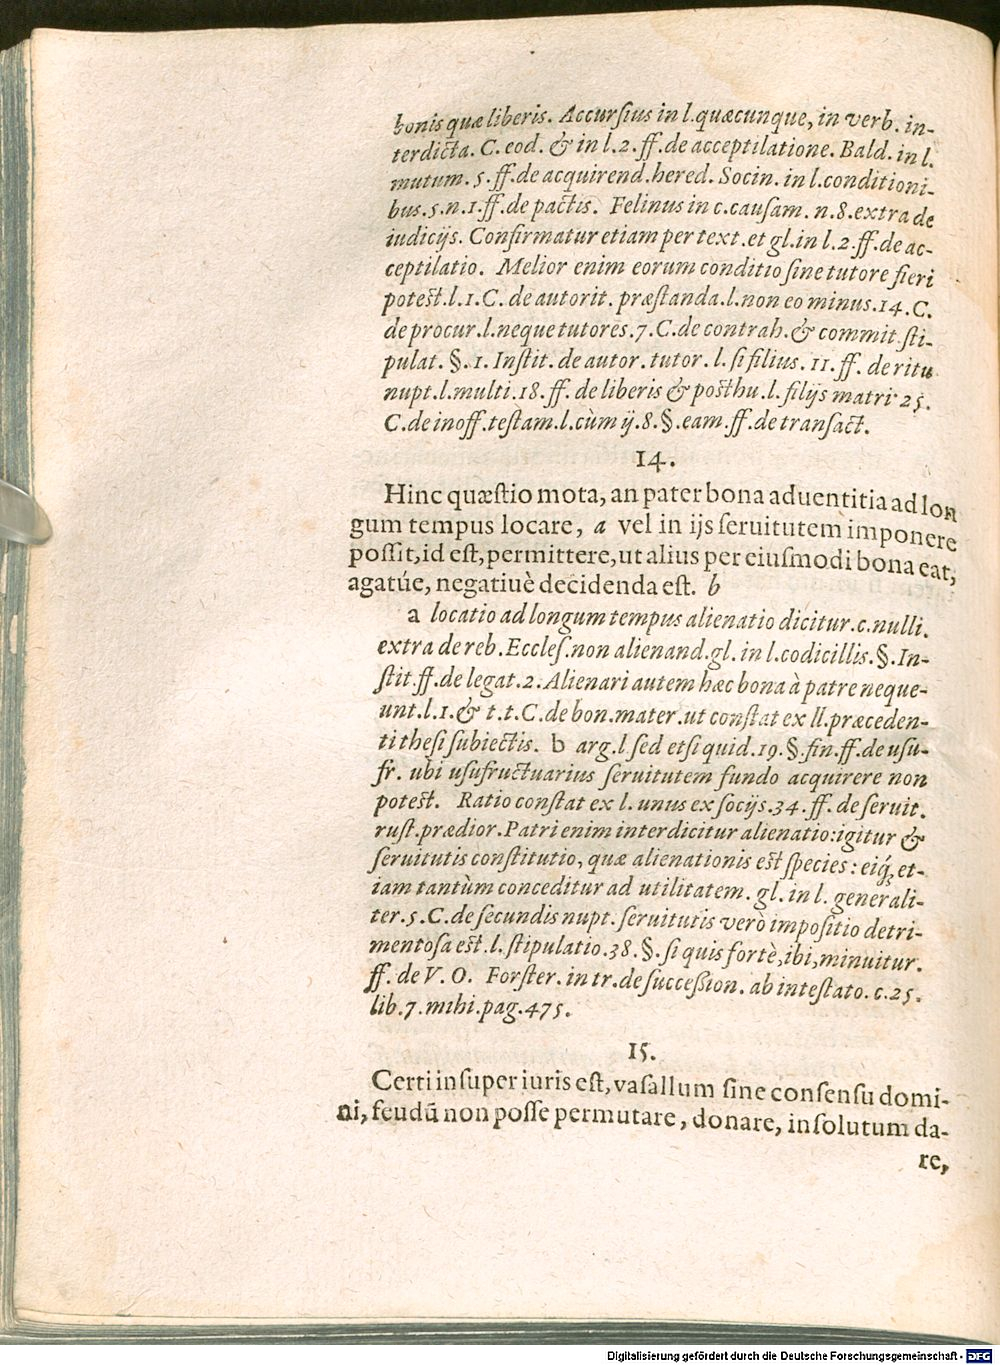 bonis quæ liberis. Accurſius in l. quæcunque, in verb. in-
terdicta. C. eod. & in l. 2. ff. de acceptilatione. Bald. in l.
mutum. 5. ff. de acquirend. hered. Socin. in l. conditioni-
bus. 5. n. 1. ff. de pactis. Felinus in c. cauſam. n. 8. extra de
iudicijs. Confirmatur etiam per text. et gl. in l. 2. ff. de ac-
ceptilatio. Melior enim eorum conditio ſine tutore fieri
poteſt. l. 1. C. de autorit. præſtanda. l. non eo minus. 14. C.
de procur. l. neque tutores. 7. C. de contrah. & commit. ſti-
pulat. §. 1. Inſtit. de autor. tutor. l. ſi filius. 11. ff. de ritu
nupt. l. multi. 18. ff. de liberis & poſthu. l. filijs matri 25.
C. de inoff. teſtam. l. cùm ij. 8. §. eam. ff. de tranſact.
14.
Hinc quæſtio mota, an pater bona aduentitia ad lon
gum tempus locare, a vel in ijs ſeruitutem imponere
poſſit, id eſt, permittere, ut alius per eiuſmodi bona eat,
agatúe, negatiuè decidenda eſt. b
a locatio ad longum tempus alienatio dicitur. c. nulli.
extra de reb. Eccleſ. non alienand. gl. in l. codicillis. §. In-
ſtit. ff. de legat. 2. Alienari autem hæc bona à patre neque-
unt. l. 1. & t. t. C. de bon. mater. ut conſtat ex ll. præceden-
ti theſi ſubiectis. b arg. l. ſed etſi quid. 19. §. fin. ff. de uſu-
fr. ubi uſufructuarius ſeruitutem fundo acquirere non
poteſt. Ratio conſtat ex l. unus ex ſocijs. 34. ff. de ſeruit.
ruſt. prædior. Patri enim interdicitur alienatio: igitur &
ſeruitutis conſtitutio, quæ alienationis eſt ſpecies: eiq́; et-
iam tantùm conceditur ad utilitatem. gl. in l. generali-
ter. 5. C. de ſecundis nupt. ſeruitutis verò impoſitio detri-
mentoſa eſt. l. ſtipulatio. 38. §. ſi quis fortè, ibi, minuitur.
ff. de V. O. Forſter. in tr. de ſucceßion. ab inteſtato. c. 25.
lib. 7. mihi. pag. 475.
15.
Certi inſuper iuris eſt, vaſallum ſine conſenſu domi-
ni, feudũ non poſſe permutare, donare, in ſolutum da-
re,
Digitalisierung gefördert durch die Deutsche Forschungsgemeinschaft - DFG